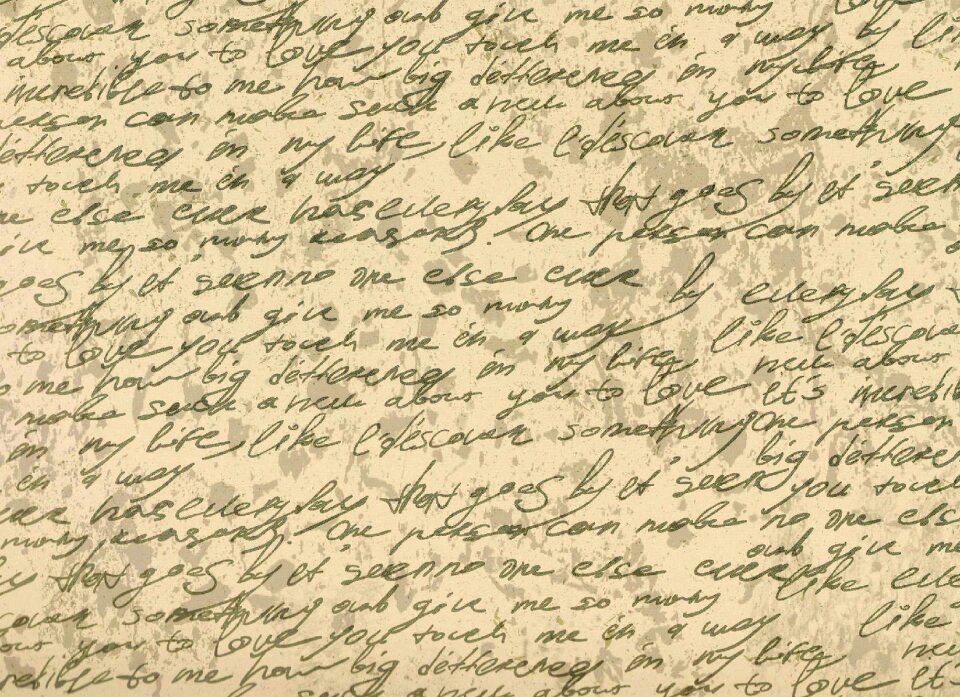 discover something and give me so many love
about you to love you touch me in a way by
incredible to me how big differences in my life
person can make such a new about you to love
differences in my life, like I discover something
touch me in a way
one else ever has every day that goes by it seem
give me so many reasons. One person can make
goes by it seem no one else ever by every day
something and give me so many
to love you touch me in a way like I discover
to me how big differences in my life new about
make such a new about you to love it's incredible
in my life, like I discover something One person
in a way big differences
ever has every day that goes by it seem you touch
many reasons. One person can make no one else
that goes by it seem no one else ever and give me
discover something and give me so many like
about you to love you touch me in a way like
incredible to me how big differences in my life new
such a new about you to love it's